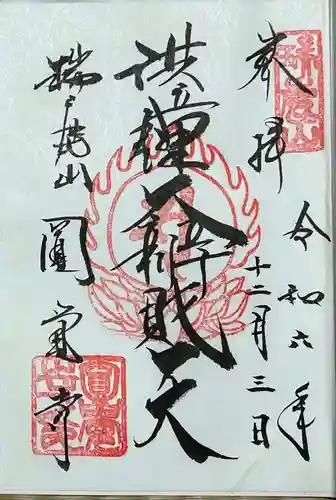 奉拝
令和六年
十二月三日
洪鐘大辨財天
瑞鹿山
圓覺寺